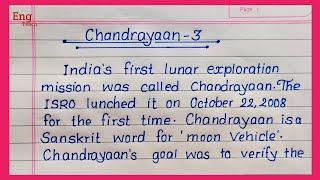 Eng
Page :
Chandrayaan-3
India's first lunar exploration
mission was called Chandrayaan. The
ISRO lunched it on October 22, 2008
for the first time. Chandrayaan is a
Sanskrit word for 'moon Vehicle'.
Chandrayaan's goal was to verify the